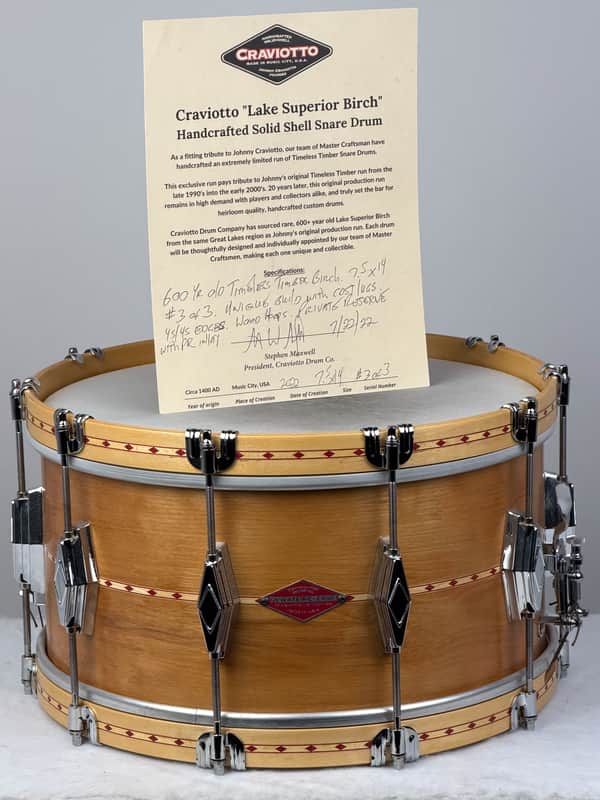 HANDCRAFTED
SOLID SHELL
CRAVIOTTO
MADE IN MUSIC CITY, U.S.A.
JOHNNY CRAVIOTTO
FOUNDER
Craviotto "Lake Superior Birch"
Handcrafted Solid Shell Snare Drum
As a fitting tribute to Johnny Craviotto, our team of Master Craftsman have
handcrafted an extremely limited run of Timeless Timber Snare Drums.
This exclusive run pays tribute to Johnny's original Timeless Timber run from the
late 1990's into the early 2000's. 20 years later, this original production run
remains in high demand with players and collectors alike, and truly set the bar for
heirloom quality, handcrafted custom drums.
Craviotto Drum Company has sourced rare, 600+ year old Lake Superior Birch
from the same Great Lakes region as Johnny's original production run. Each drum
will be thoughtfully designed and individually appointed by our team of Master
Craftsmen, making each one unique and collectible.
Specifications:
600 Yr old Timeless Timber Birch. 7.5 x 14
#3 of 3. Unique Build with cost lugs.
45/45 EDGES. Wood Hoops. PRIVATE RESERVE
with PR inlay
7/22/22
Stephen Maxwell
President, Craviotto Drum Co.
Circa 1400 AD Music City, USA 7.5x14 #3 of 3
Year of origin Place of Creation Date of Creation Size Serial Number